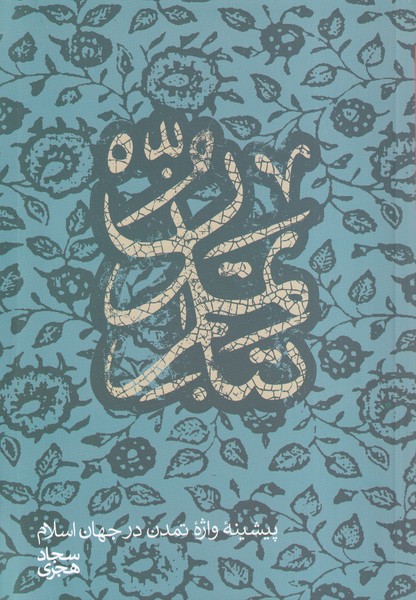 تبار تمدن
پیشینهٔ واژهٔ تمدن در جهان اسلام
سجاد
هجری